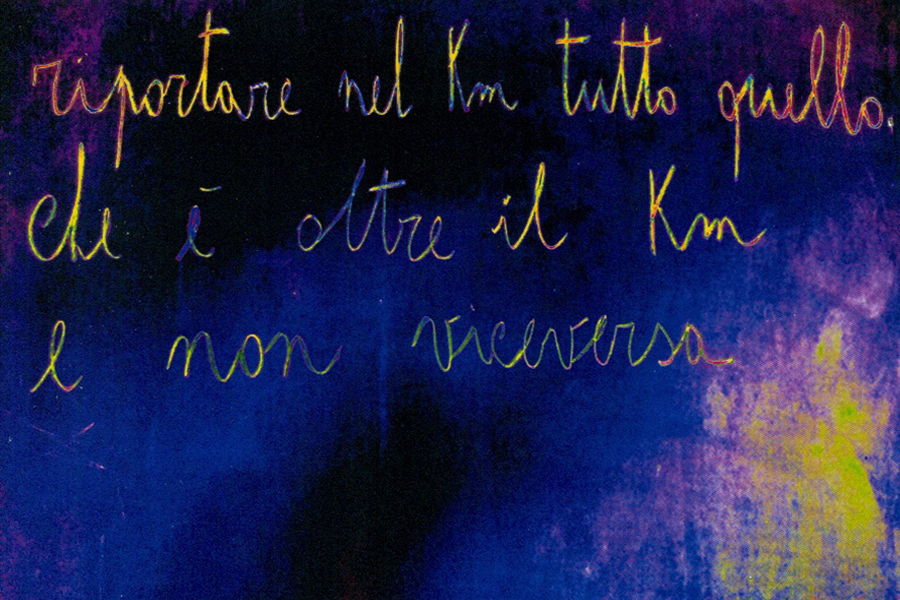 riportare nel Km tutto quello.
che è oltre il Km
e non viceversa